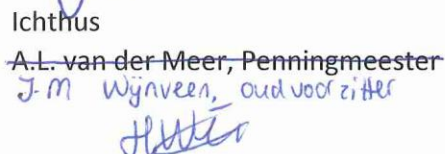 Ichthus
A.L. van der Meer, Penningmeester
J.M Wijnveen, oud voorzitter